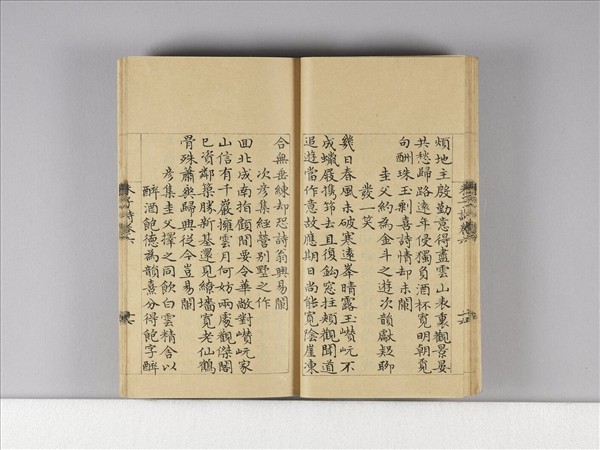 煩地主殷勤意得盡雲山表裏觀景晏
共愁歸路遠年侵獨負酒杯寬明朝覓
句酬珠玉剩喜詩情却未闌
圭父約為金斗之遊次韻獻疑聊
發一笑
幾日春風未破寒遠峯晴露玉巑岏不
成蠟屐攜筇去且復鈎窓拄頰觀聞道
追遊當作意故應期日尚能寬陰崖凍
合無垂練却恐詩翁興易闌
次彥集經營別墅之作
回北成南指顧間要令華敞對巑岏家
山信有千巖擁雲月何妨兩處觀傑閣
已資鄰築勝新基還見繚墻寬老仙鶴
骨殊蕭爽歸興從今豈易闌
彥集圭父擇之同飲白雲精舍以
醉酒飽德為韻熹分得飽字醉